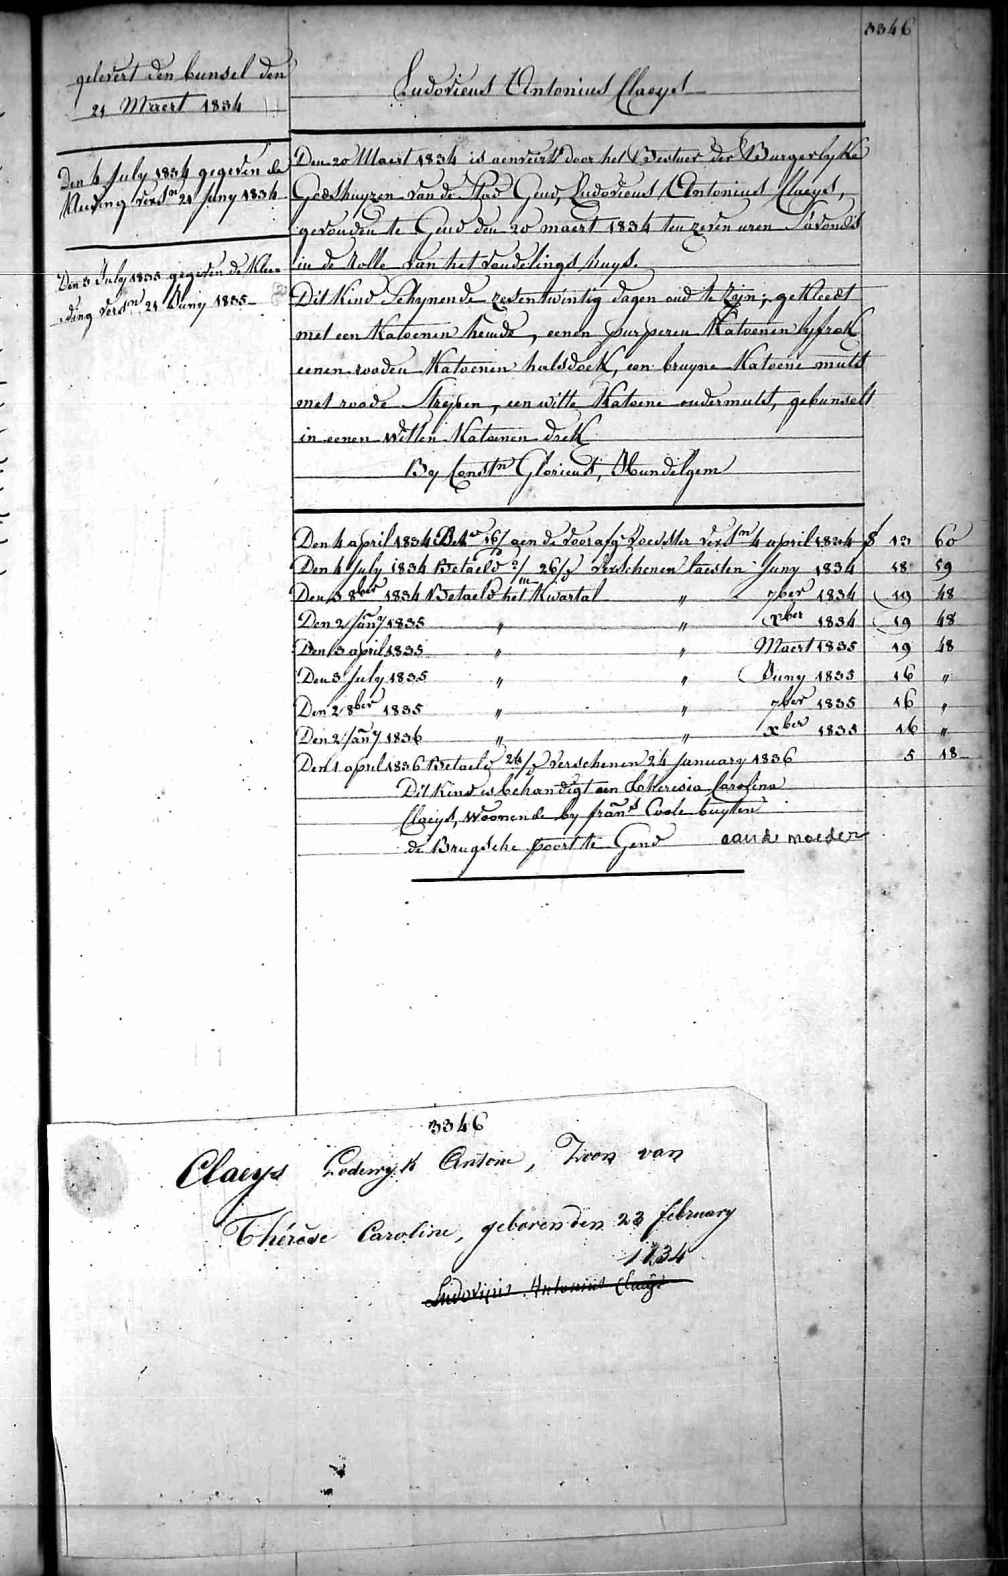 3346
gelevert den bunsel den
21 Maert 1834
Den 4 July 1834 gegeven de
Kleeding versn 21 Juny 1834
Den 3 July 1835 gegeven de Klee-
ding versn 21 Juny 1835
Ludovicus Antonius Claeys
Den 20 Maert 1834 is aenveird door het Bestuer der Burgerlyke
Godshuyzen van de Stad Gend, Ludovicus Antonius Claeys,
gevonden te Gend den 20 maert 1834 ten zeven uren S'avonds
in de Rolle van het vondelings huys.
Dit Kind Schynende zesentwintig dagen oud te Zyn; gekleedt
met een Katoenen hemde, eenen purperen Katoenen lyfrok
eenen rooden Katoenen halsdoek, een bruyne Katoene muts
met roode Strypen, een witte Katoene ondermuts, gebunselt
in eenen witten Katoenen doek
By Constn Glorieus, Mundelgem
Den 4 april 1834 16/ aen de voorafg. voedster versn 4 april 1834 f 13 60
Den 4 July 1834 Betaeld 26/ Verschenen laesten Juny 1834 18 59
Den 3 8ber 1834 Betaeld het Kwartal " 7ber 1834 19 48
Den 2 Jany 1835 " " xber 1834 19 48
Den 3 april 1835 " " Maert 1835 19 48
Den 3 July 1835 " " Juny 1835 16 "
Den 2 8ber 1835 " " 7ber 1835 16 "
Den 2 Jany 1836 " " xber 1835 16 "
Den 1 april 1836 Betaeld 24/ verschenen 24 January 1836 5 18
Dit Kind is behandigt aen Theresia Carolina
Claeys, woonende by frans Coole buyten
de Brugsche poort te Gend zaude moeder
3346
Claeys Lodewyk Antoine, Zoon van
Thérèse Caroline, geboren den 23 february
1834
Ludovicus Antonius Claeys